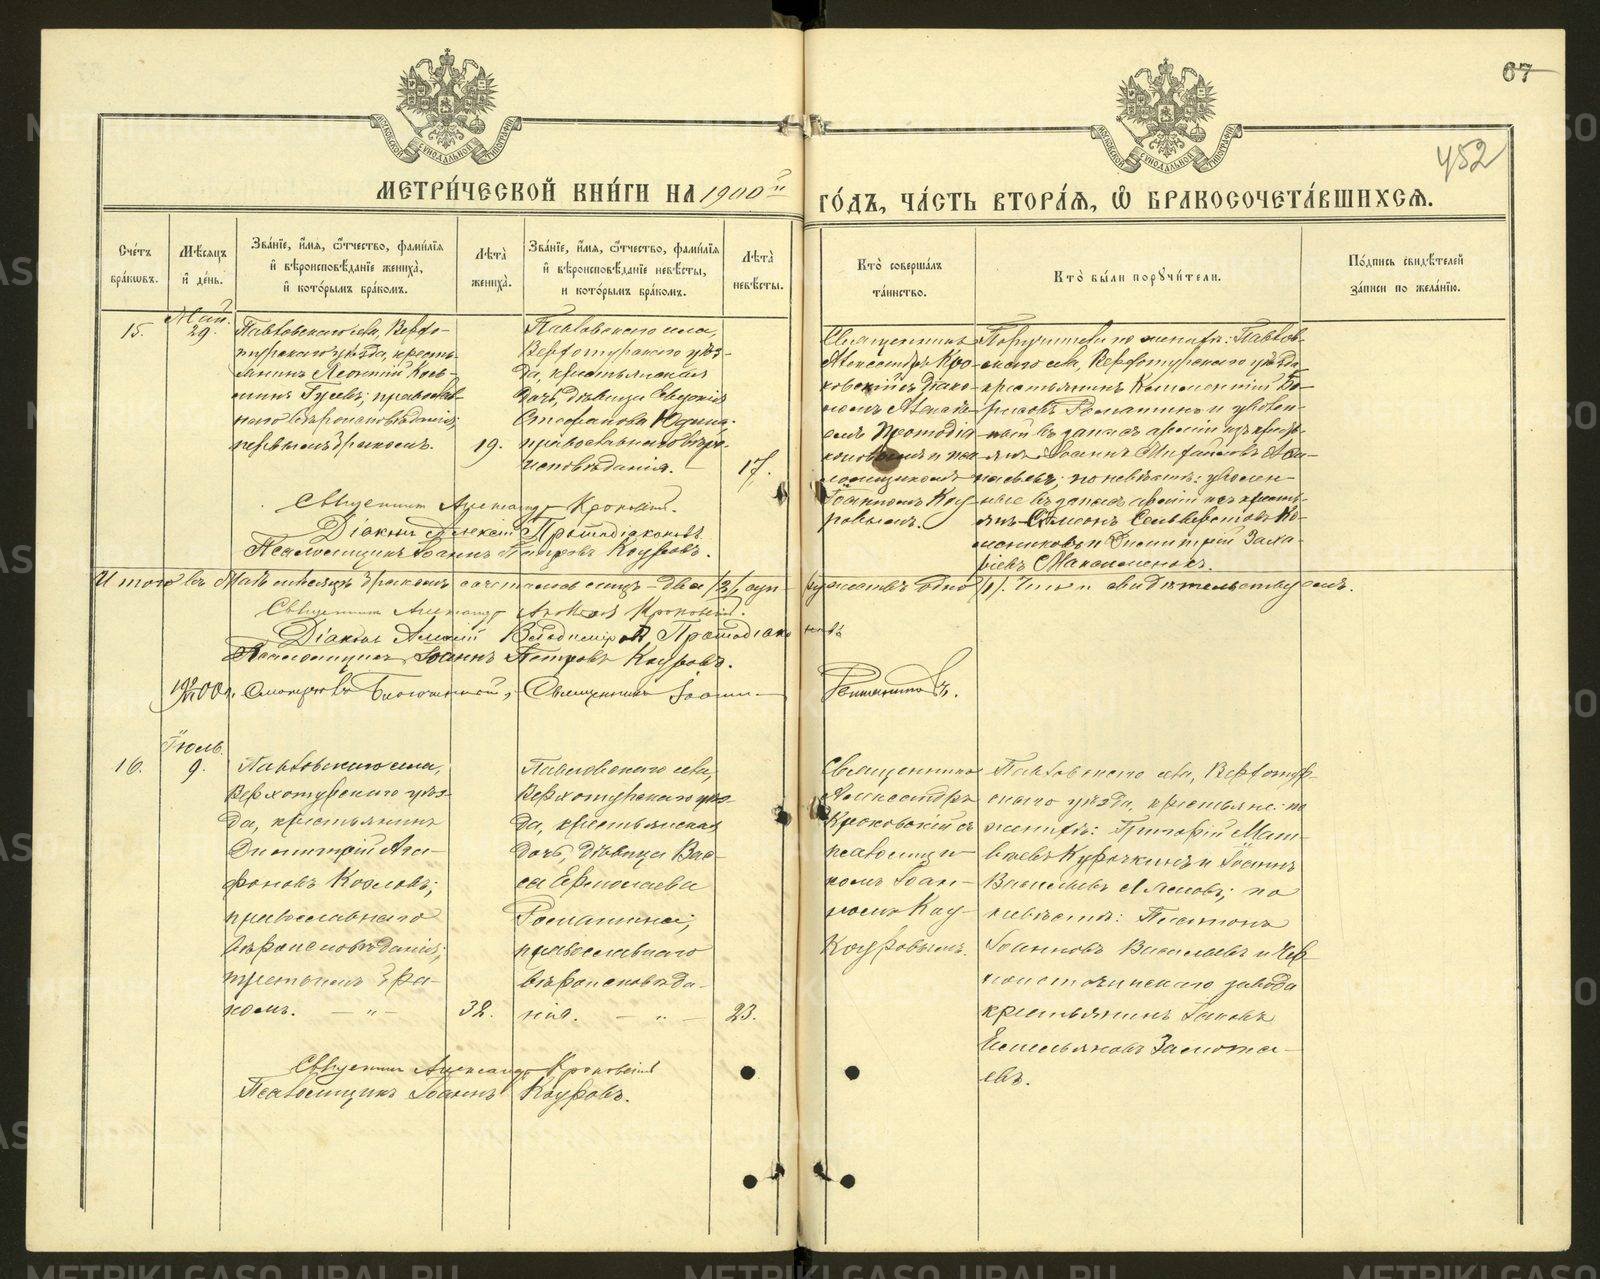 67
452
МОСКОВСКОЙ СУНОДАЛЬНОЙ ТИПОГРАФІИ
МОСКОВСКОЙ СУНОДАЛЬНОЙ ТИПОГРАФІИ
МЕТРИ́ЧЕСКОЙ КНИ́ГИ НА 1900й ГО́ДЪ, ЧА́СТЬ ВТОРА́Я, Ѽ БРАКОСОЧЕТА́ВШИХСЯ.
Сче́тъ бра́кѡвъ.
Мѣ́сяцъ и҆ де́нь.
Зва́нїе, и҆́мя, ѻ҆́тчество, фами́лїя
и҆ вѣроисповѣ́данїе жениха̀,
и҆ кото́рымъ бра́комъ.
Лѣта̀ жениха̀.
Зва́нїе, и҆́мя, ѻ҆́тчество, фами́лїя
и҆ вѣроисповѣ́данїе невѣ́сты,
и кото́рымъ бра́комъ.
Лѣта̀ невѣ́сты.
Кто̀ соверша́лъ та́инство.
Кто̀ бы́ли порꙋчи́тели.
По́дпись свидѣ́телей за́писи по жела́нїю.
15.
Май.
29.
Павловскаго села, Верхо-
турскаго уѣзда, кресть-
янинъ Леонтій Козь-
минъ Гусевъ; православ-
наго вѣроисповѣданія;
первымъ бракомъ.
19.
Павловскаго села,
Верхотурскаго уѣз-
да, крестьянская
дочь, дѣвица Евдокія
Стефанова Юдина;
православнаго вѣро-
исповѣданія.
17.
Священникъ
Александръ Кро-
ковскій съ діако-
номъ Алексѣ-
емъ Протодіа-
коновымъ и пса-
ломщикомъ
Іоанномъ Кау-
ровымъ.
Поручители по женихѣ: Павлов-
скаго села, Верхотурскаго уѣзда
крестьянинъ Климентій Бо-
рисовъ Ромашинъ и уволен-
ный въ запасъ арміи изъ кресть-
янъ Іоаннъ Михайловъ
по невѣстѣ: уволен-
ные въ запасъ арміи изъ кресть-
янъ Симеонъ Селиверстовъ
и Димитрій Заха-
ріевъ
Священникъ Александръ Кроковскій.
Діаконъ Алексій Протодіаконовъ
Псаломщикъ Іоаннъ Петровъ Кауровъ.
Итого въ Маѣ мѣсяцѣ бракомъ сочеталось лицъ два /2/ суп-
ружествъ одно /1/. Что и свидѣтельствуемъ.
Священникъ Александръ Кроковскій.
Діаконъ Алексій Владиміровъ Протодіако-новъ
Псаломщикъ Іоаннъ Петровъ Кауровъ.
Священникъ Іоаннъ
Іюль.
16.
9.
Павловскаго села,
Верхотурскаго уѣз-
да, крестьянинъ
Димитрій Ага-
фоновъ Козловъ;
православнаго
вѣроисповѣданія;
третьимъ бра-
комъ. — „ —
32.
Павловскаго села,
Верхотурскаго уѣз-
да, крестьянская
дочь, дѣвица Вас-
са Ермолаева
Ромашина;
православнаго
вѣроисповѣда-
нія. — „ —
23.
Священникъ
Александръ
Кроковскій съ
псаломщи-
комъ Іоан-
номъ Кау-
Кауровымъ.
Павловскаго села, Верхотур-
скаго уѣзда, крестьяне: по
женихѣ: Григорій Мат-
вѣевъ Курочкинъ и Іоаннъ
Васильевъ по
невѣстѣ: Платонъ
Іоанновъ Васильевъ и Чер-
ноисточинскаго завода
крестьянинъ Іаковъ
Емельяновъ
евъ.
Священникъ Александръ Кроковскій
Псаломщикъ Іоаннъ Кауровъ.
METRIKI.GASO-URAL.RU